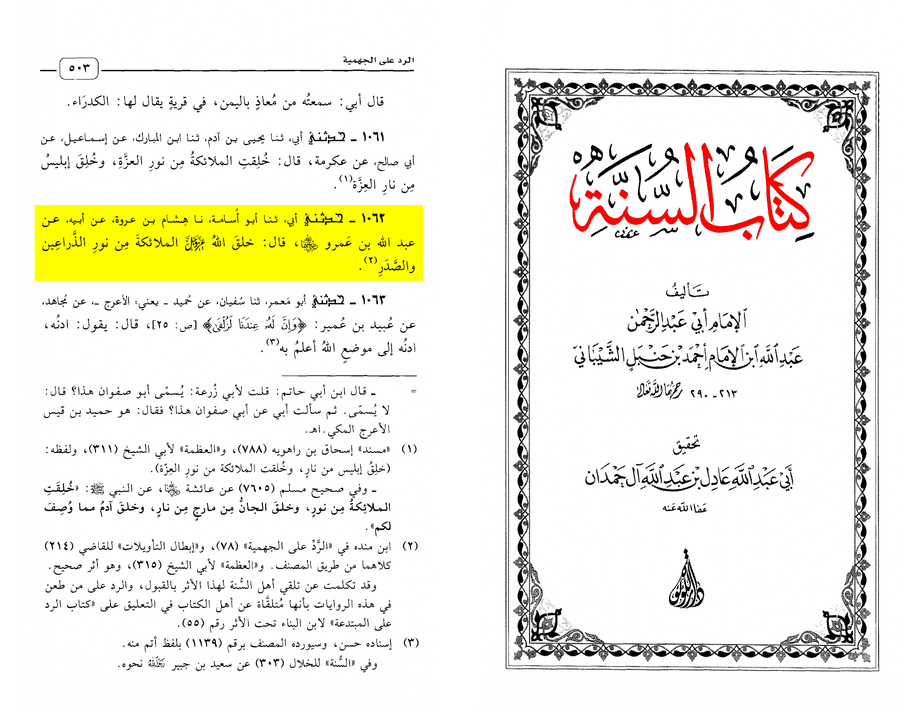 الرد على الجهمية
٥٠٣
قال أبي: سمعتُه من مُعاذٍ باليمن، في قريةٍ يقال لها: الكدرَاء.
١٠٦١ ـ حدثني أبي، ثنا يحيى بن آدم، ثنا ابن المبارك، عن إسماعيل، عن
أبي صالح، عن عكرمة، قال: خُلِقتِ الملائكةُ مِن نورِ العزَّةِ، وخُلِقَ إبليسُ
مِن نارِ العِزَّة(١).
١٠٦٢ ـ حدثني أبي، ثنا أبو أُسامة، نا هِشام بن عروة، عن أبيه، عن
عبد الله بن عَمرو ﵄، قال: خلقَ اللهُ ﷿ الملائكةَ مِن نورِ الذِّراعين
والصَّدَرِ(٢).
١٠٦٣ ـ حدثني أبو مَعمر، ثنا سُفيان، عن حُميد ـ يعني: الأعرج ـ، عن مُجاهد،
عن عُبيد بن عُمير: ﴿وَإِنَّ لَهُۥ عِندَنَا لَزُلْفَىٰ﴾ [ص: ٢٥]، قال: يقول: ادنُه،
ادنُه إلى موضعٍ اللهُ أعلمُ به(٣).
= ـ قال ابن أبي حاتم: قلت لأبي زُرعة: يُسمّى أبو صفوان هذا؟ قال:
لا يُسمّى. ثم سألت أبي عن أبي صفوان هذا؟ فقال: هو حميد بن قيس
الأعرج المكي.اهـ.
(١) «مسند» إسحاق بن راهويه (٧٨٨)، و«العظمة» لأبي الشيخ (٣١١)، ولفظه:
(خلِقُ إبليس من نارِ، وخُلقت الملائكة من نورِ العِزّة).
ـ وفي صحيح مسلم (٧٦٠٥) عن عائشة ﵂، عن النبي ﷺ: «خُلِقَتِ
الملائِكةُ مِن نورٍ، وخلقَ الجانُّ مِن مارجٍ مِن نارٍ، وخلقَ آدمُ مما وُصِفَ
لكم».
(٢) ابن منده في «الرَّدِّ على الجهمية» (٧٨)، و«إبطال التأويلات» للقاضي (٢١٤)
كلاهما من طريق المصنف. و«العظمة» لأبي الشيخ (٣١٥)، وهو أثر صحيح.
وقد تكلمت عن تلقي أهل السُّنة لهذا الأثر بالقبول، والرد على من طعن
في هذه الروايات بأنها مُتلقَّاة عن أهل الكتاب في التعليق على «كتاب الرد
على المبتدعة» لابن البناء تحت الأثر رقم (٥٥).
(٣) إسناده حسن، وسيورده المصنف برقم (١١٣٩) بلفظ أتم منه.
وفي «السُّنة» للخلال (٣٠٣) عن سعيد بن جبير ﵀ نحوه.
كِتَابُ السُّنَّةِ
تأليفُ
الإمَامِ أبي عَبْدِ الرَّحْمٰن
عَبْدِ اللَّهِ ابْنِ الإمَامِ أحْمَدَ بْنِ حَنْبَلٍ الشَّيْبَانيّ
٢١٣ ـ ٢٩٠ رحمهما الله تعالى
تحقيق
أبي عَبْدِ اللَّهِ عَادِل بْنِ عَبْدِ اللَّهِ آل حَمْدَان
عفا الله عنه
دار اللؤلؤة